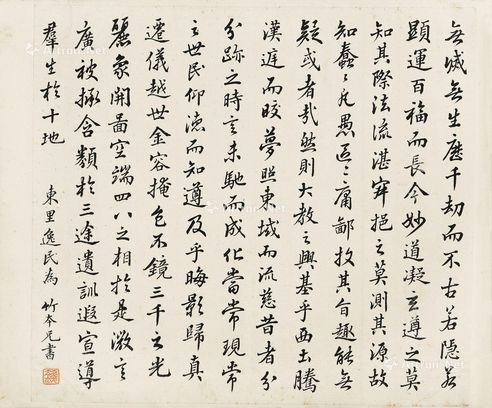 無滅無生歷千劫而不古若隱若
顯運百福而長今妙道凝玄遵之莫
知其際法流湛寂挹之莫測其源故
知蠢〻凡愚區〻庸鄙投其旨趣能無
疑或者哉然則大教之興基乎西土騰
漢庭而皎夢照東域而流慈昔者分
分跡之時言未馳而成化當常現常
之世民仰德而知遵及乎晦影歸真
遷儀越世金容掩色不鏡三千之光
麗象開圖空端四八之相於是微言
廣被拯含類於三途遺訓遐宣導
羣生於十地 東里逸民為 竹本兄書